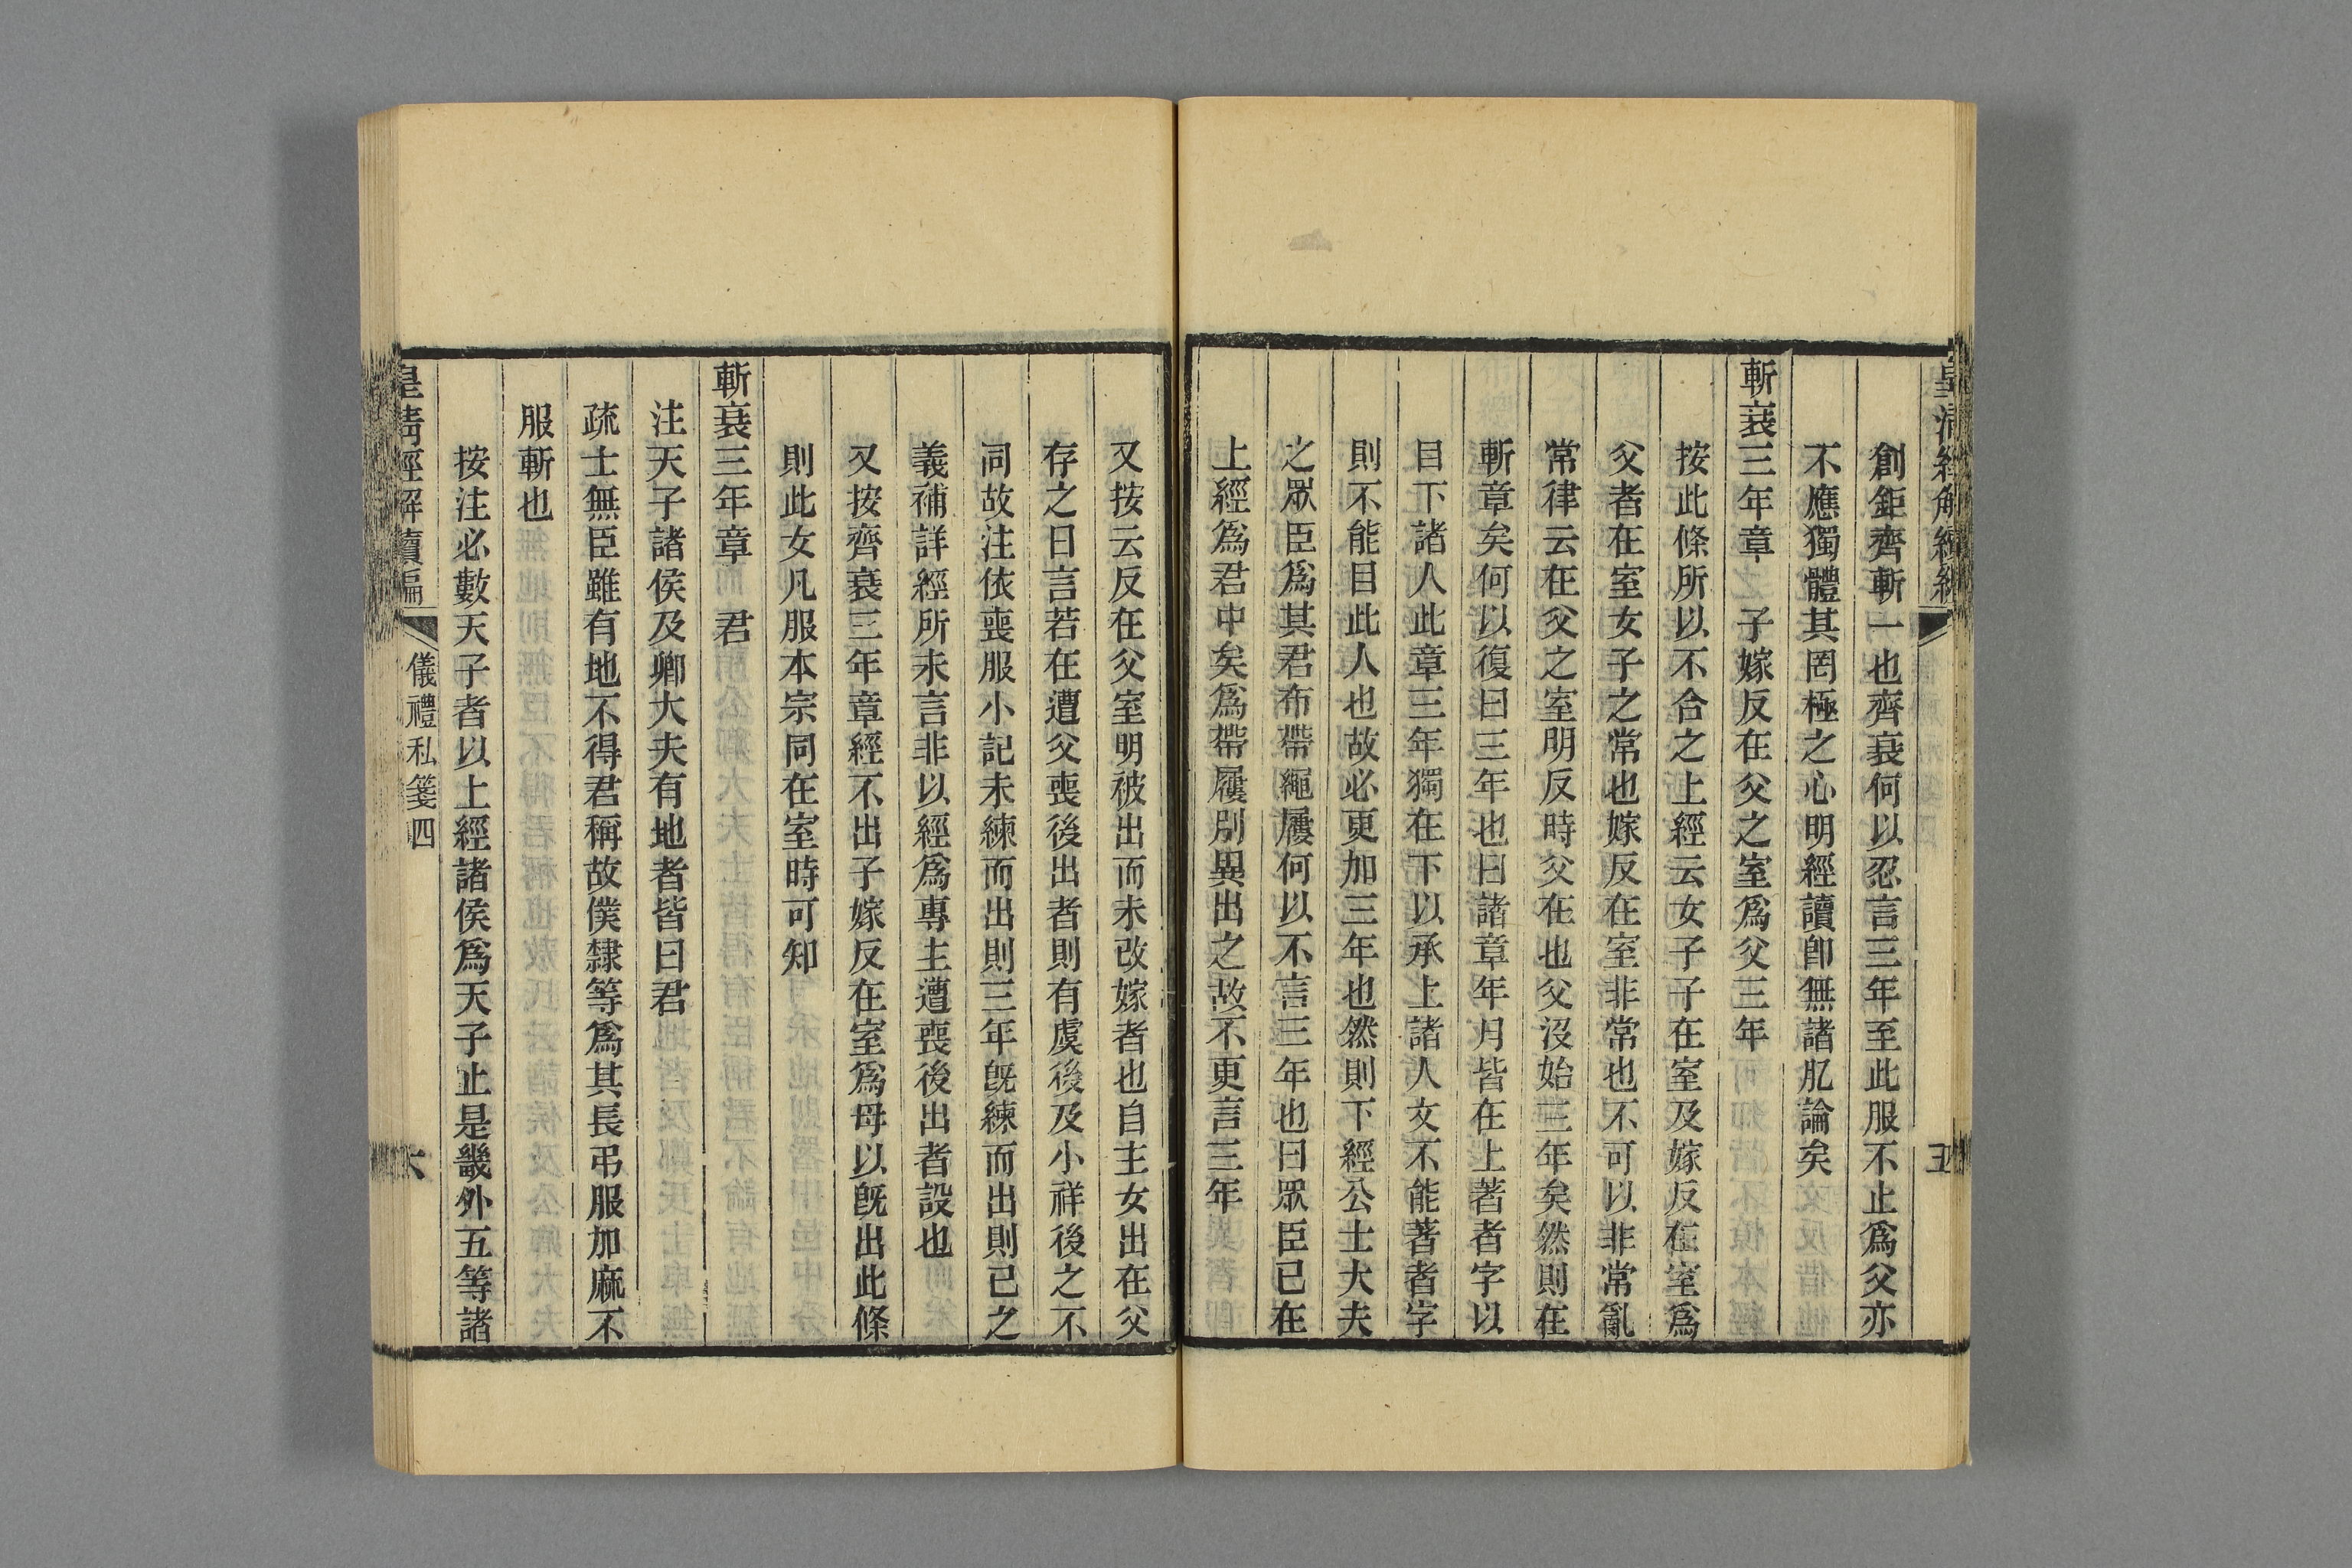 創鉅齊斬一也齊衰何以忍言三年至此服不止爲父亦
不應獨體其罔極之心明經讀卽無諸肊論矣
斬衰三年章　子嫁反在父之室爲父三年
按此條所以不合之上經云女子子在室及嫁反在室爲
父者在室女子之常也嫁反在室非常也不可以非常亂
常律云在父之室明反時父在也父沒始三年矣然則在
斬章矣何以復曰三年也曰諸章年月皆在上著者字以
目下諸人此章三年獨在下以承上諸人文不能著者字
則不能目此人也故必更加三年也然則下經公士大夫
之眾臣爲其君布帶繩屨何以不言三年也曰眾臣已在
上經爲君中矣爲帶屨別異出之故不更言三年
又按云反在父室明被出而未改嫁者也自主女出在父
存之日言若在遭父喪後出者則有虞後及小祥後之不
同故注依喪服小記未練而出則三年既練而出則已之
義補詳經所未言非以經爲專主遭喪後出者設也
又按齊衰三年章經不出子嫁反在室爲母以既出此條
則此女凡服本宗同在室時可知
斬衰三年章　君
注天子諸侯及卿大夫有地者皆曰君
疏士無臣雖有地不得君稱故僕隸等爲其長弔服加麻不
服斬也
按注必數天子者以上經諸侯爲天子止是畿外五等諸
皇清經解續編　儀禮私箋四　六